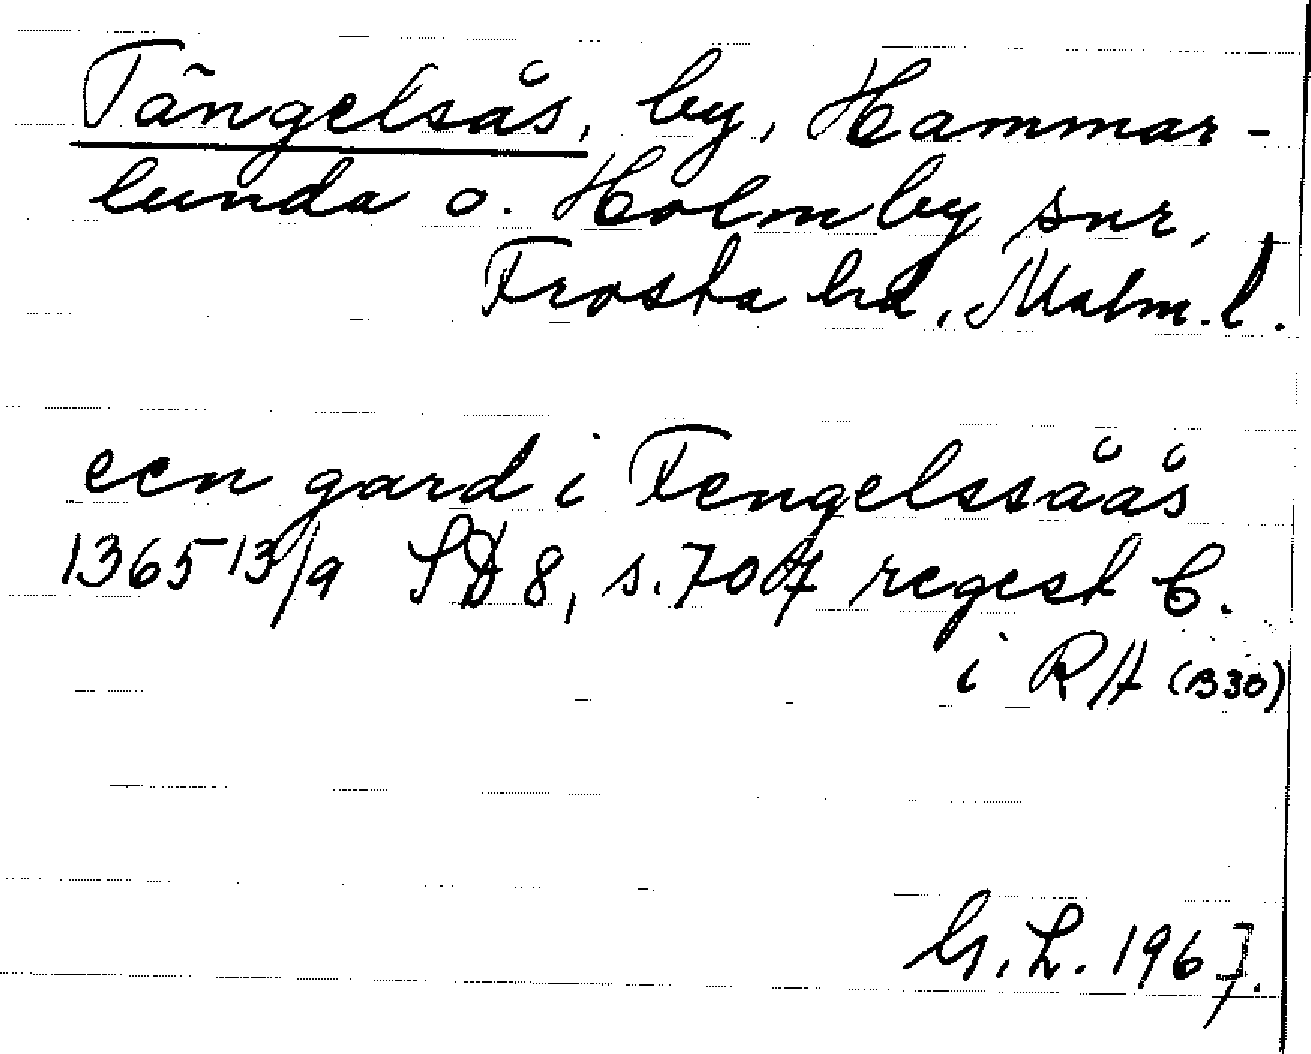 Tängelsås, by, Hammar-
lunda o. Holmby snr,
Frosta hd, Malm. l.
een gard i Tengelssåås
1365 13/9 SD 8, s. 707 regest b.
i RA (B30)
G. L. 1967.